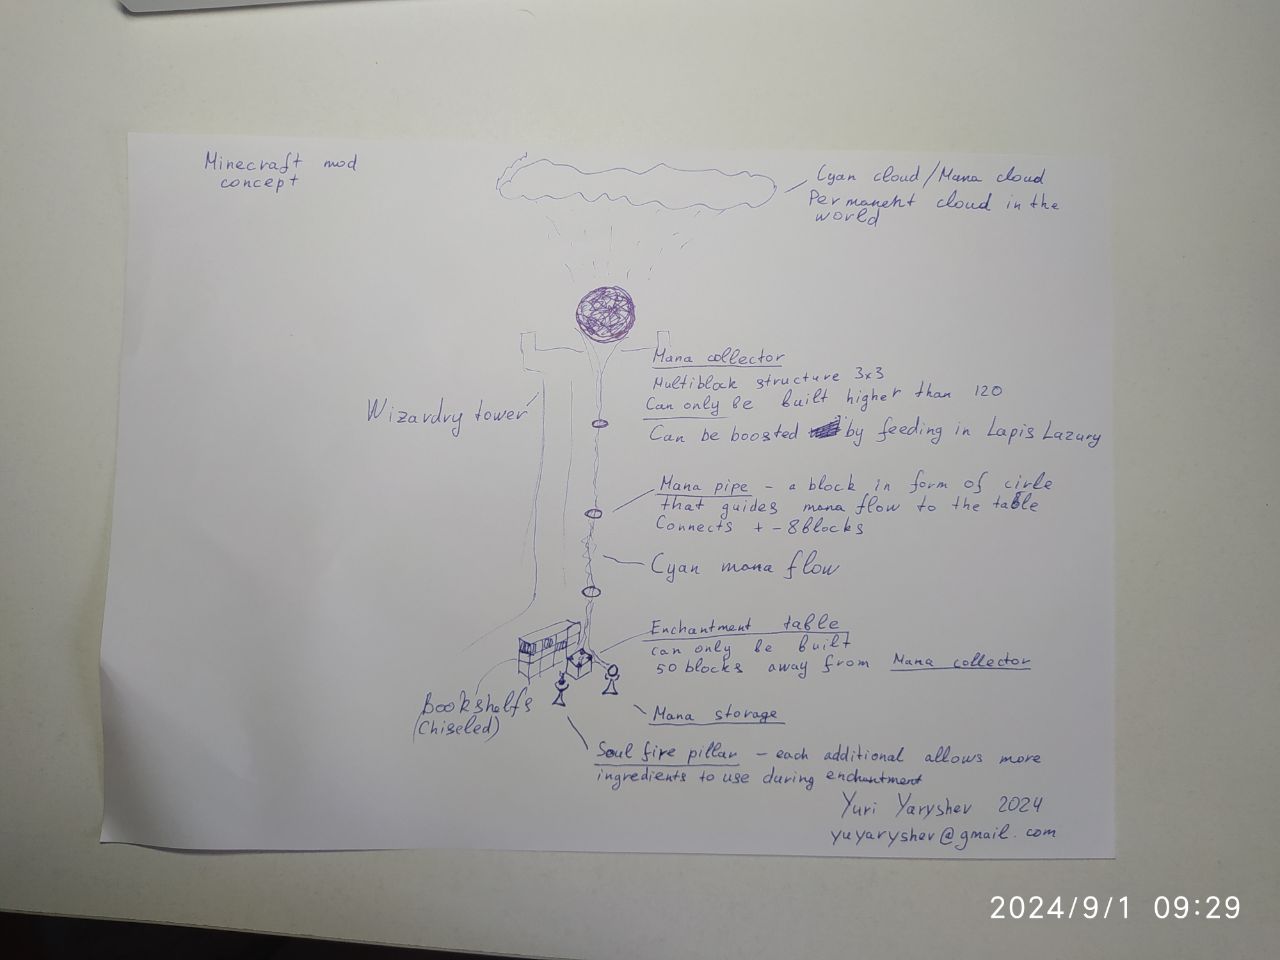 Minecraft mod
concept
Cyan cloud/Mana cloud
Permanent cloud in the
world
Mana collector
Multiblock structure 3x3
Can only be built higher than 120
Can be boosted by feeding in Lapis Lazury
Wizardry tower
Mana pipe - a block in form of cirle
that guides mana flow to the table
Connects + - 8 blocks
Cyan mana flow
Enchantment table
can only be built
50 blocks away from Mana collector
Bookshelfs
(Chiseled)
Mana storage
Soul fire pillar - each additional allows more
ingredients to use during enchantment
Yuri Yaryshev 2024
yuyaryshev@gmail.com
2024/9/1 09:29